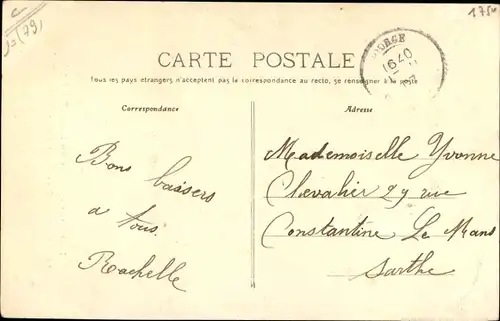 CARTE POSTALE
Tous les pays étrangers n'acceptent pas la correspondance au recto, se renseigner à la poste
Correspondance
Adresse
Bons baisers
a tous.
Rachelle
Mademoiselle Yvonne
Chevalier 29 rue
Constantine Le Mans
Sarthe
(79)